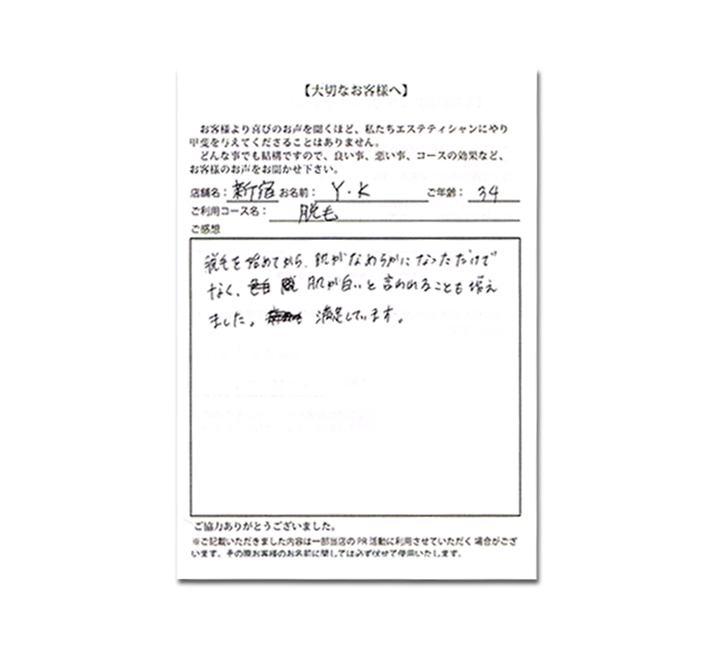 【大切なお客様へ】
お客様より喜びのお声を聞くほど、私たちエステティシャンにやり
甲斐を与えてくださることはありません。
どんな事でも結構ですので、良い事、悪い事、コースの効果など、
お客様のお声をお聞かせ下さい。
店舗名：新宿 お名前：Y・K ご年齢：34
ご利用コース名：脱毛
ご感想
脱毛を始めてから、肌がなめらかになっただけで
なく、肌が白いと言われることも増え
ました。満足しています。
ご協力ありがとうございました。
※ご記載いただきました内容は一部当店のPR活動に利用させていただく場合がござ
います。その際お客様のお名前に関しては必ず伏せて使用いたします。